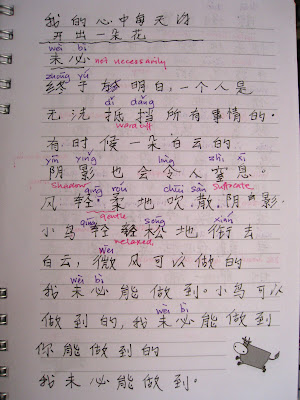 我的心中每天
开出一朵花
wèi bì
未必 not necessarily
zhōng yú
终于够明白，一个人是
dǐ dǎng
无法抵挡所有事情的。
ward off
有时候一朵白云的
yīn yǐng lìng zhì xī
阴影也会令人窒息。
shadow suffocate
qīng róu chuī sàn
风轻柔地吹散阴影
gentle
qīng sōng xián
小鸟轻轻松地衔去
relaxed
wēi
白云，微风可以做的
wèi bì
我未必能做到。小鸟可以
wèi bì
做到的，我未必能做到
你能做到的
我未必能做到。